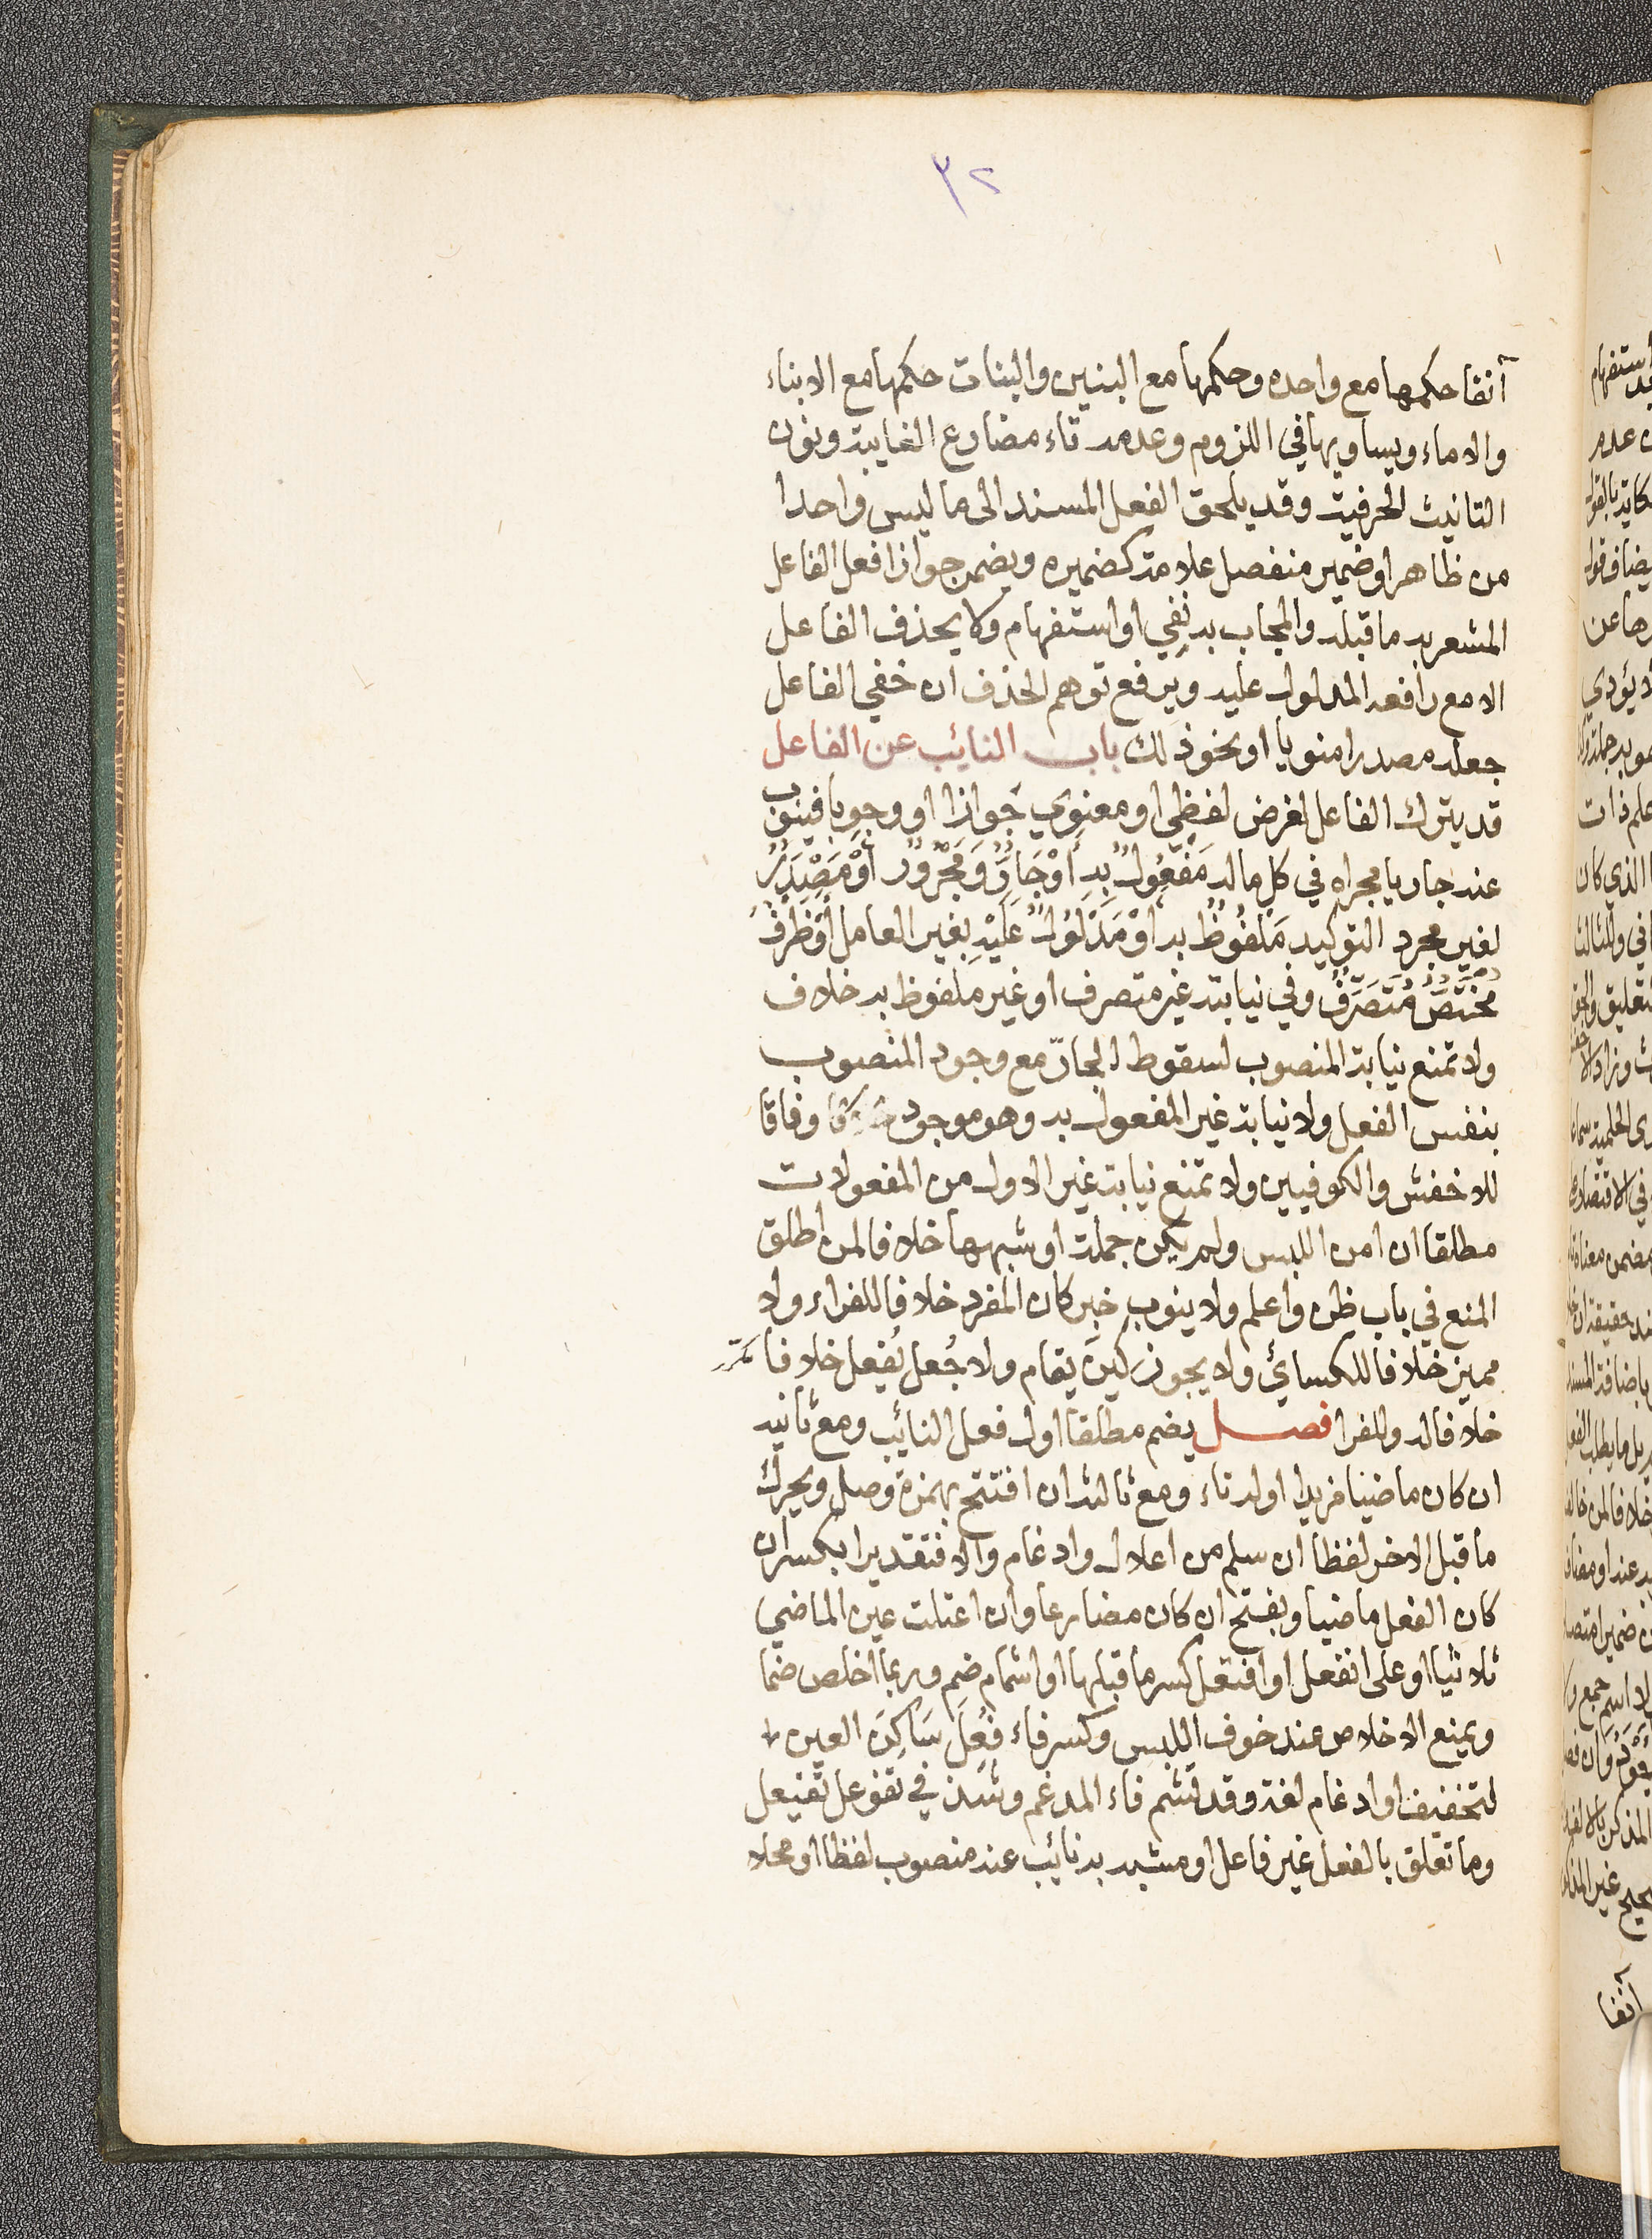 ٣٢
آنفا حكمها مع واحده وحكمها مع البنين والبنات حكمها مع الابناء
والاماء ويساويها في اللزوم وعدمه تاء مضارع الغايبة ونون
التانيث الحرفية وقد يلحق الفعل المسند الى ما ليس واحدا
من ظاهر او ضمير منفصل علامة كضميره ويضمر جوازا فعل الفاعل
المشعر به ما قبله والمجاب به نفي او استفهام ولا يحذف الفاعل
الا مع رافعه المدلول عليه ويرفع توهم الحذف ان خفي الفاعل
جعله مصدرا منويا او نحو ذلك باب النائب عن الفاعل
قد يترك الفاعل لغرض لفظي او معنوي جوازا او وجوبا فينوب
عنه جاريا مجراه في كل ماله مَفْعُولٌ بِهِ أَوْ جَارٌّ وَمَجْرُورٌ أَوْ مَصْدَرٌ
لغير مجرد التوكيد مَلْفُوظٌ به أَوْ مَدْلُولٌ عَلَيْهِ بغير العامل أَوْ ظَرْفٌ
مُخْتَصٌّ مُتَصَرِّفٌ وفي نيابته غير متصرف او غير ملفوظ به خلاف
ولا تمنع نيابة المنصوب لسقوط الجارّ مع وجود المنصوب
بنفس الفعل ولا نيابة غير المفعول به وهو موجود وفاقا
للاخفش والكوفيين ولا تمنع نيابة غير الاول من المفعولات
مطلقا ان امن اللبس ولم يكن جملة او شبهها خلافا لمن اطلق
المنع في باب ظن واعلم ولا ينوب خبر كان المفرد خلافا للفراء ولا
مميز خلافا للكسائي ولا يجوز كين يقام ولا جُعل يُفعل خلافا
خلافا له وللفرا فصل يضم مطلقا اول فعل النائب ومع ثانيه
ان كان ماضيا مزيدا اوله تاء ومع ثالثه ان افتتح بهمزة وصل ويحرك
ما قبل الاخر لفظا ان سلم من اعلال وادغام والا فتقديرا بكسر ان
كان الفعل ماضيا وبفتح ان كان مضارعا وان اعتلت عين الماضي
ثلاثيا او على انفعل او افتعل كسر ما قبلها او اشمام ضم وربما اخلص ضما
ويمنع الاخلاص عند خوف اللبس وكسر فاء فُعِلَ سَاكِنَ العين
لتخفيف او ادغام لغة وقد تشم فاء المدغم وشذ في تفوعل تفيعل
وما تعلق بالفعل غير فاعل او مشبه به نائب عنه منصوب لفظا او محلا
آنفا